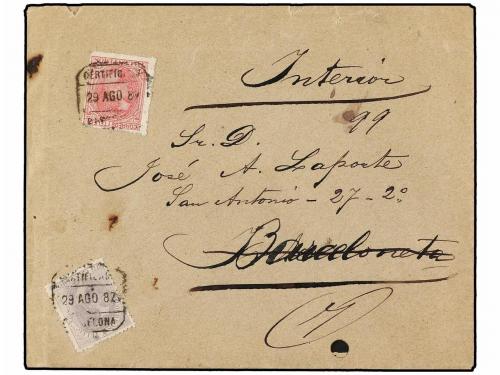 CERTIFIC
29 AGO 82
Interior
99
Sr. D.
José A. Laporte
San Antonio - 27 - 2º
Barceloneta
CERTIFIC
29 AGO 82
ELONA